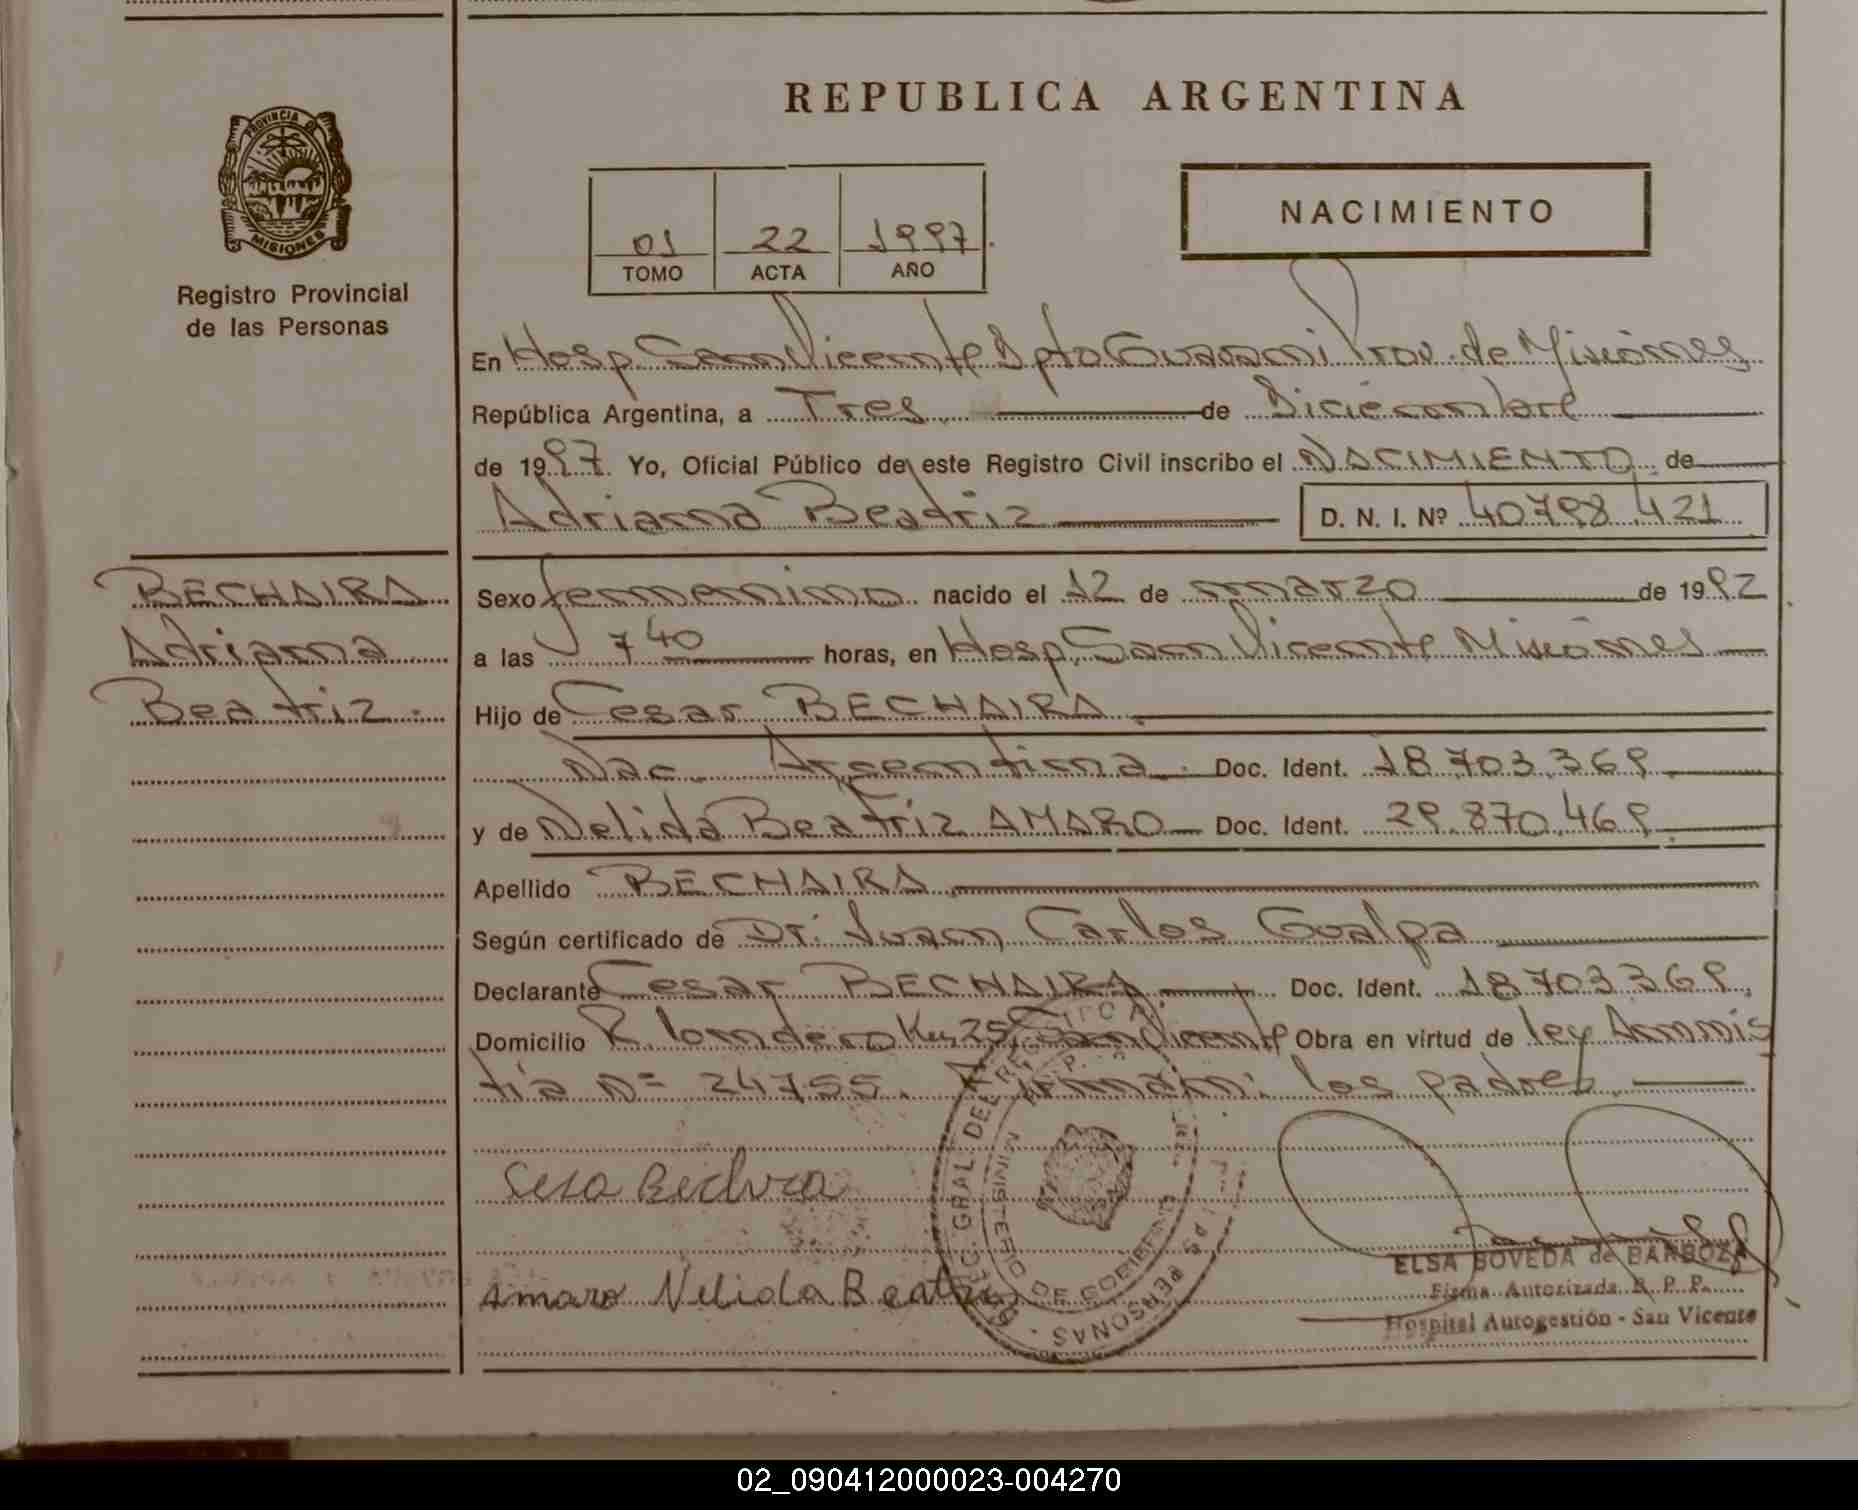 REPUBLICA ARGENTINA
PROVINCIA DE
MISIONES
Registro Provincial
de las Personas
01 22 1997
TOMO ACTA AÑO
NACIMIENTO
En Hosp. San Vicente Dpto Guarani Prov. de Misiones
República Argentina, a Tres de Diciembre
de 1997. Yo, Oficial Público de este Registro Civil inscribo el NACIMIENTO de
Adriana Beatriz D. N. I. Nº 40798421
BECHAIRA
Adriana
Beatriz.
Sexo femenino nacido el 12 de marzo de 1992
a las 7 40 horas, en Hosp. San Vicente Misiones
Hijo de Cesar BECHAIRA.
Nac. Argentina. Doc. Ident. 18.703.369
y de Nelida Beatriz AMARO Doc. Ident. 29.870.469
Apellido BECHAIRA
Según certificado de Dr. Juan Carlos Gualpa
Declarante Cesar BECHAIRA Doc. Ident. 18703369
Domicilio R. londero San Vicente Obra en virtud de ley Amnis
tía nº 24755. Firman: los padres
Bechira
Amaro Nelida Beatriz
GRAL DEL REGISTRO
PERSONAS
MINISTERIO DE GOBIERNO
ELSA BOVEDA de BARBOZA
Firma Autorizada R. P. P.
Hospital Autogestión - San Vicente
02_090412000023-004270